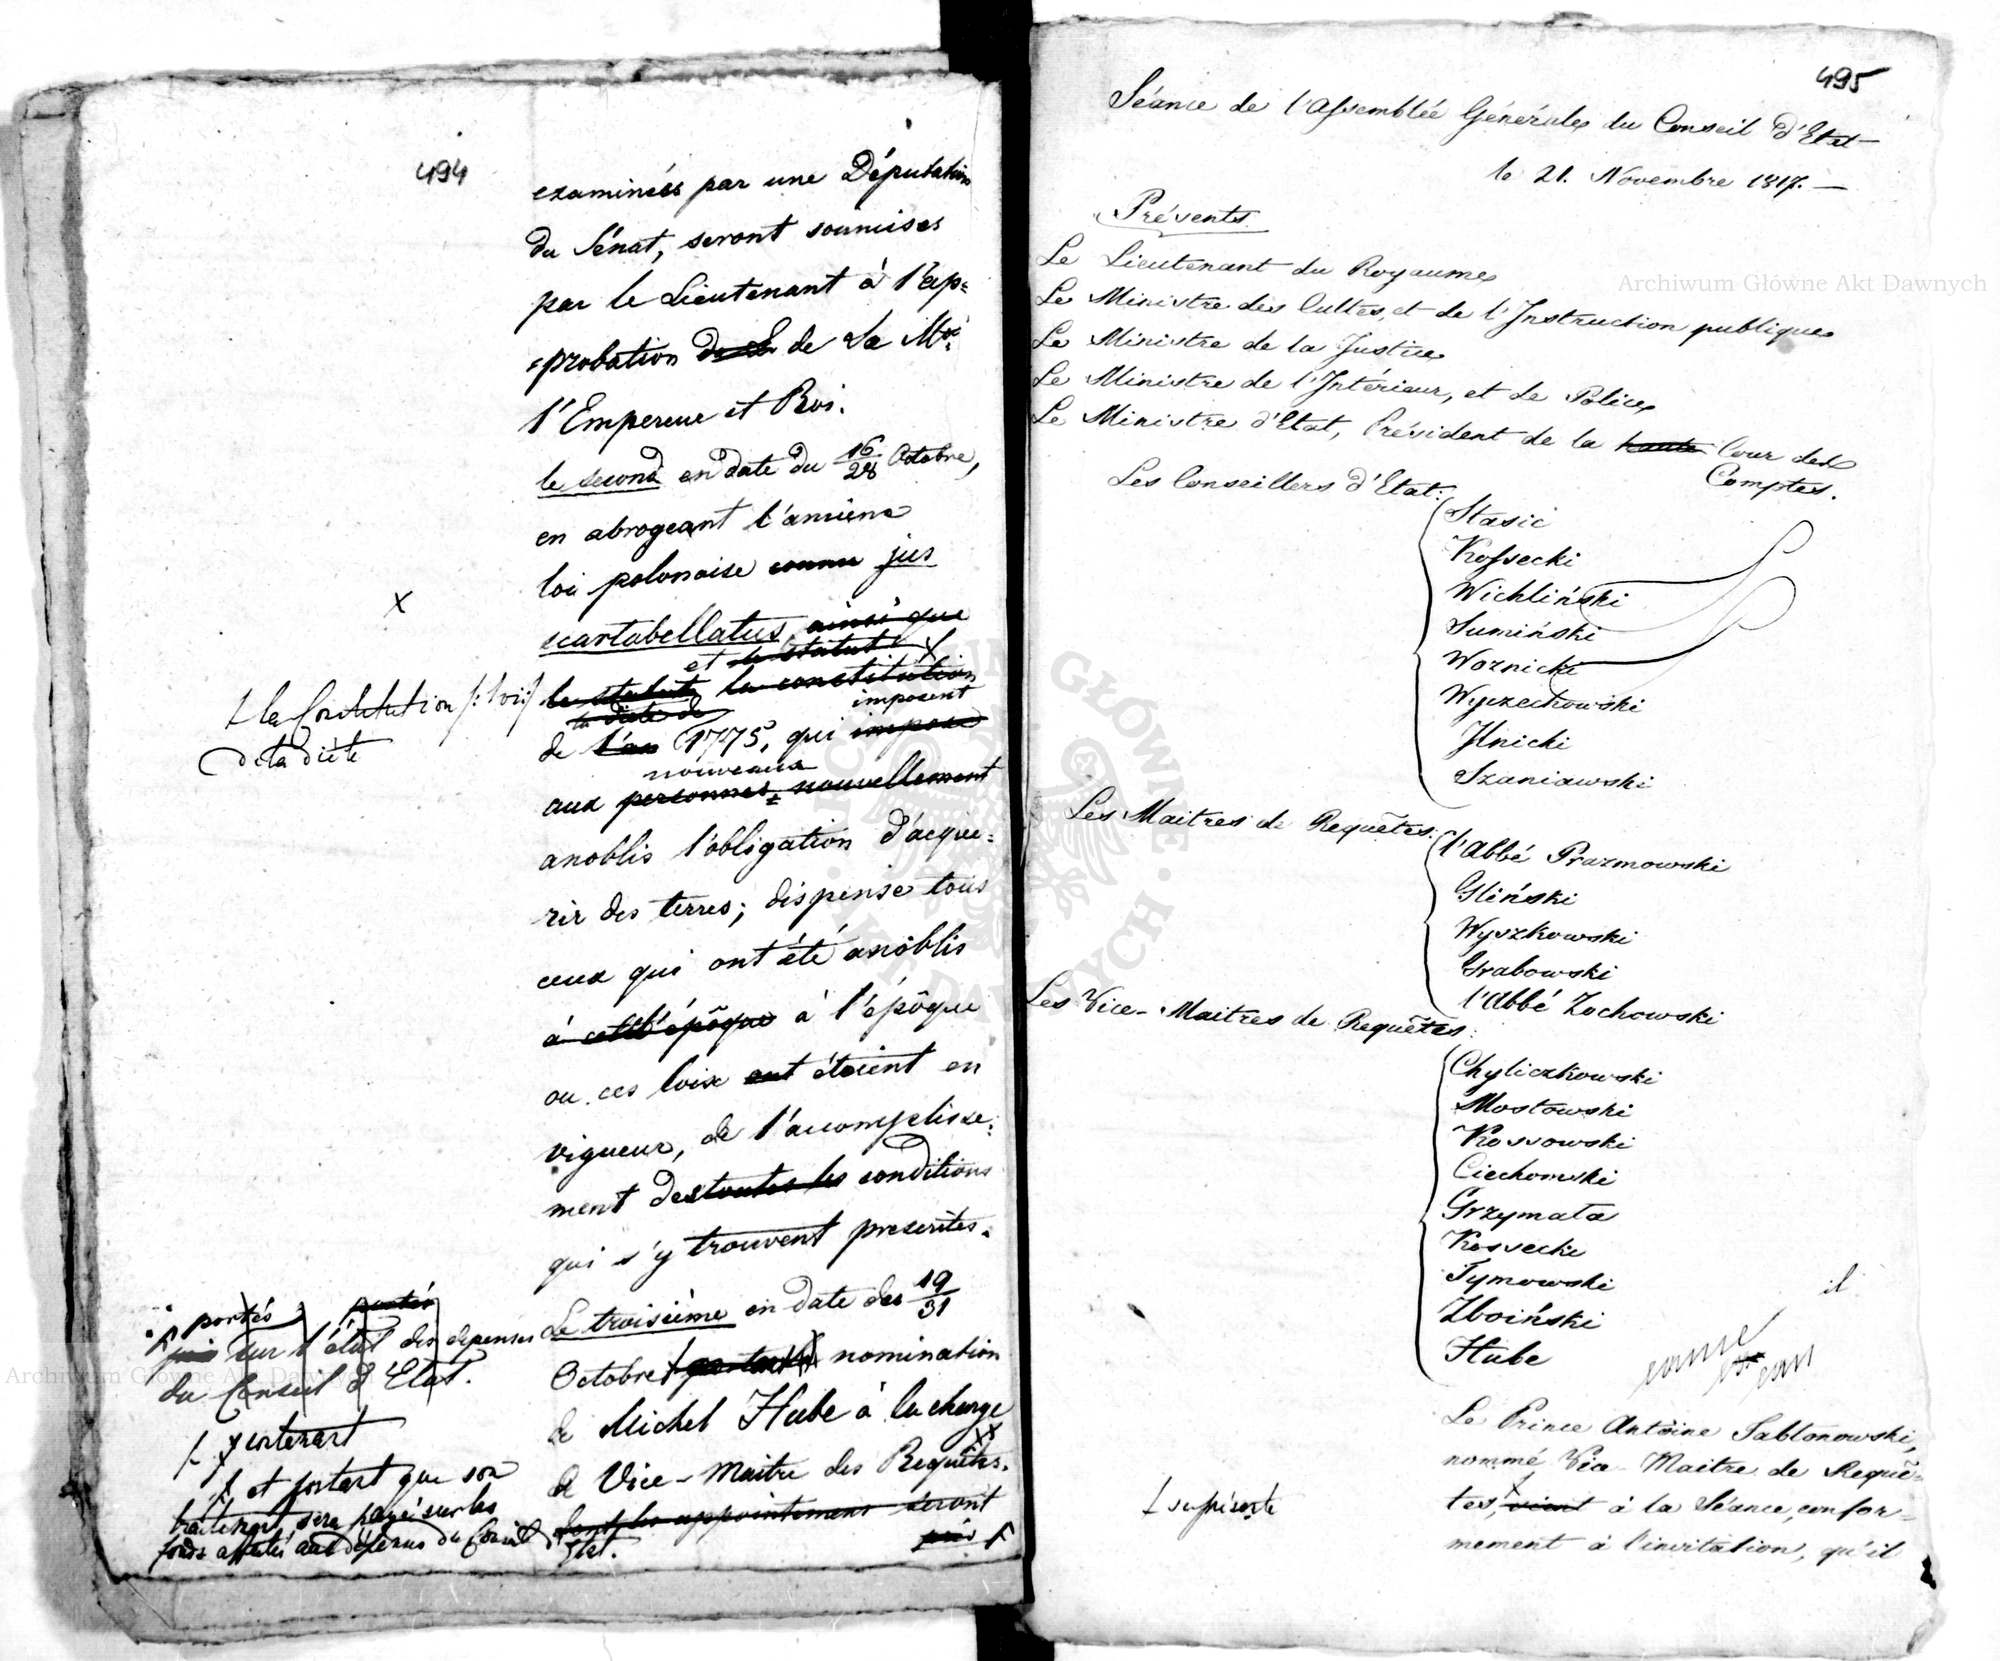 494
examinées par une Députation
du Sénat, seront soumises
par le Lieutenant à l'ap=
=probation de Sa Mté
l'Empereur et Roi.
le second en date du 16/28 Octobre,
en abrogeant l'ancienne
loi polonaise connue jus
scartabellatus, ainsi que
et le statut
le statut la constitution
imposent
la diète de
de l'an 1775, qui impose
nouveaux
aux personnes nouvellement
anoblis l'obligation d'acque=
rir des terres; dispense tous
ceux qui ont été anoblis
à cette époque à l'époque
ou ces loix ont étaient en
vigueur, de l'accomplisse=
ment des toutes les conditions
qui s'y trouvent prescrites.
Le troisième en date des 19/31
Octobre portant nomination
de Michel Hube à la charge
de Vice-Maitre des Requêtes.
dont les appointemens seront
pris
x
la Constitution /:loi:/
de la diète
portés
sur l'état des depenses
du Conseil d'Etat.
portant
et portant que son
traitement sera payé sur les
fonds affectés aux dépenses du Conseil d'Etat.
495
Séance de l'Assemblée Générale du Conseil d'Etat
le 21. Novembre 1817. —
Présents.
Le Lieutenant du Royaume
Le Ministre des Cultes, et de l'Instruction publique
Le Ministre de la Justice
Le Ministre de l'Intérieur, et de Police
Le Ministre d'Etat, Président de la haute Cour des
Comptes.
Les Conseillers d'Etat:
Stasic
Kossecki
Wichliński
Sumiński
Woznicki
Wyczechowski
Ilnicki
Szaniawski
Les Maitres de Requêtes:
l'Abbé Prazmowski
Gliński
Wyszkowski
Grabowski
l'Abbé Zochowski
Les Vice-Maitres de Requêtes:
Chyliczkowski
Mostowski
Kossowski
Ciechomski
Grzymała
Kossecki
Tymowski
Zboiński
Hube
il
comme
Le Prince Antoine Jabłonowski,
nommé Vice-Maitre de Requê=
tes, vient à la Séance, confor=
mement à l'invitation, qu'il
se présente
Archiwum Główne Akt Dawnych
Archiwum Główne Akt Dawnych